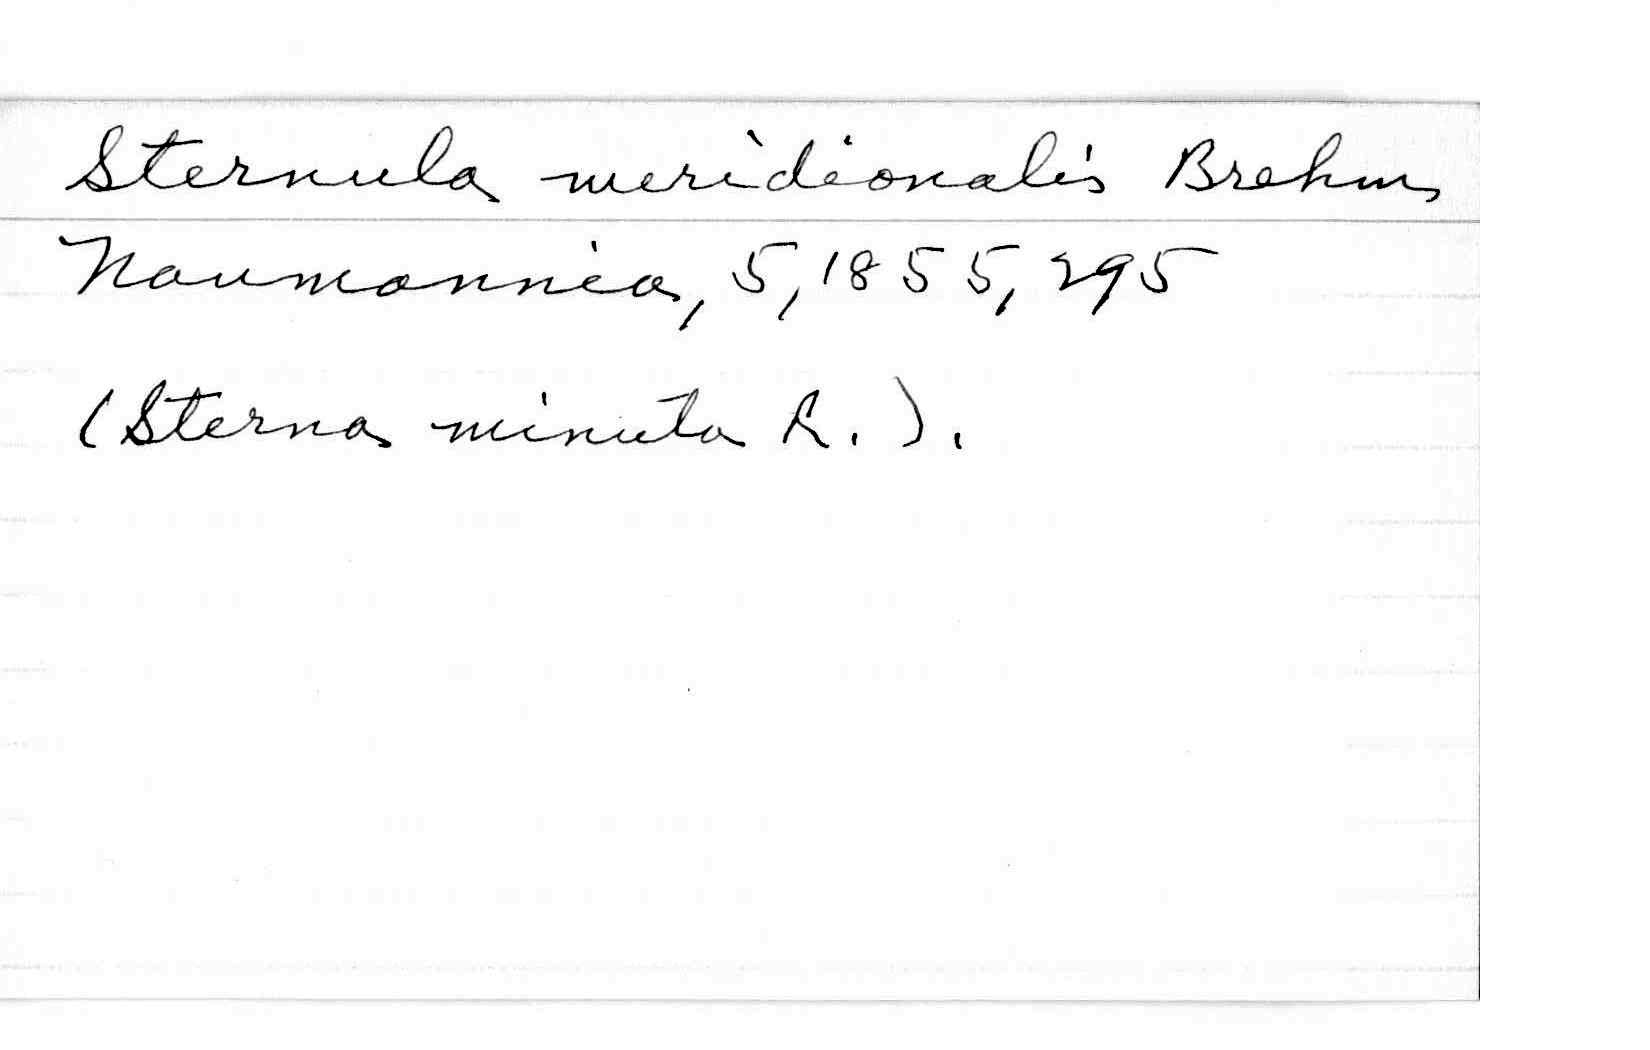 Sternula meridionalis Brehm
Naumannia, 5, 1855, 295
(Sterna minuta R.).